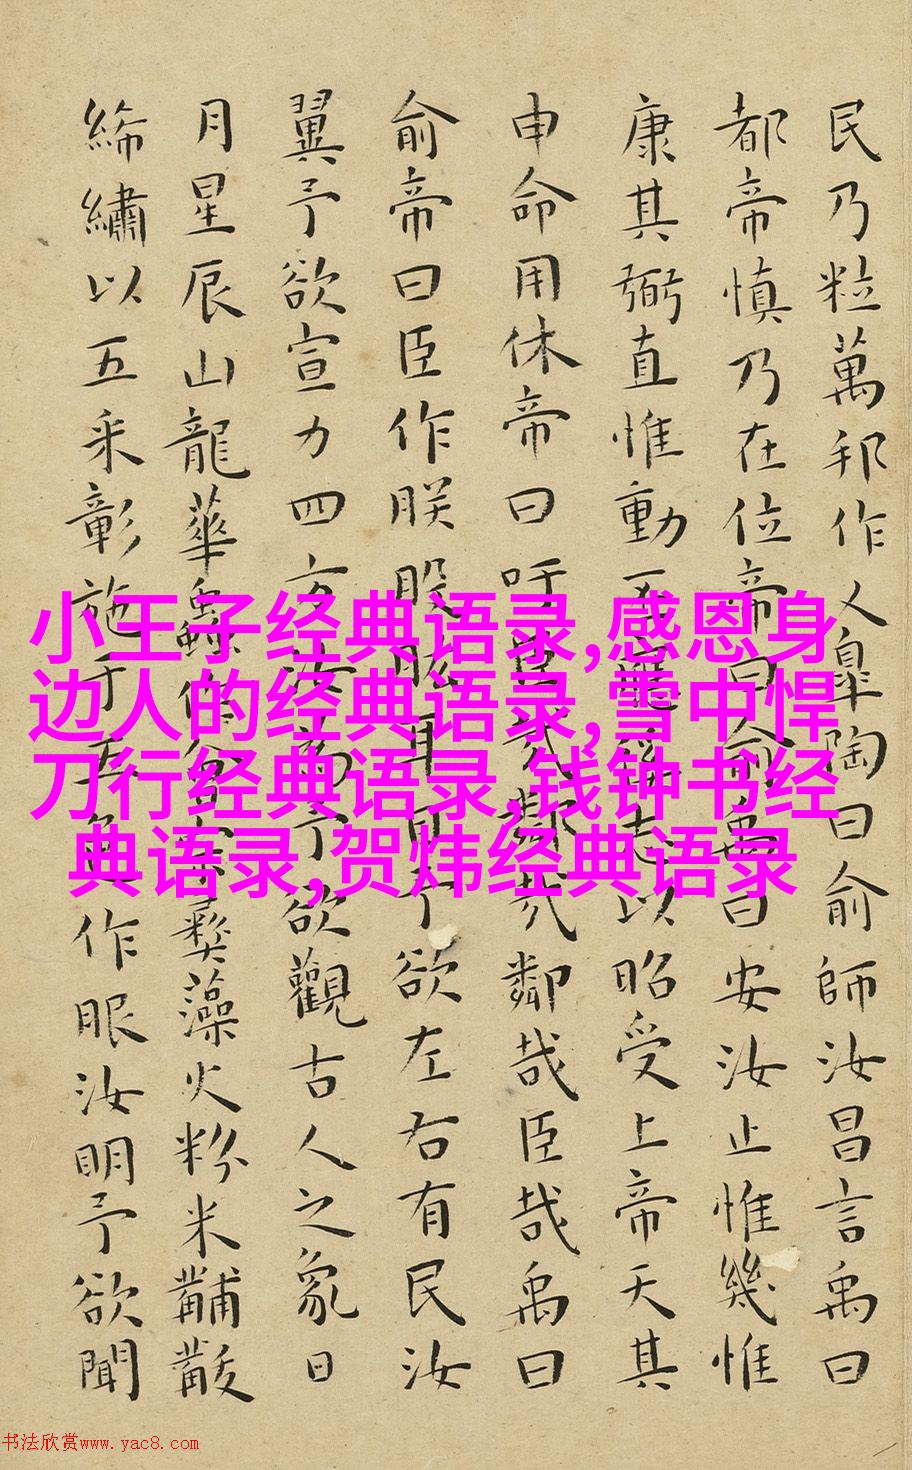 民乃粒萬邦作人皐陶曰俞師汝昌言禹曰
都帝慎乃在位帝曰俞禹曰安汝止惟幾惟
康其弼直惟動丕應徯志以昭受上帝天其
申命用休帝曰吁臣哉鄰哉鄰哉臣哉禹曰
俞帝曰臣作朕股肱耳目予欲左右有民汝
翼予欲宣力四方汝為予欲觀古人之象日
月星辰山龍華蟲作會宗彝藻火粉米黼黻
絺繡以五采彰施于五色作服汝明予欲聞
小王子经典语录,感恩身
边人的经典语录,雪中悍
刀行经典语录,钱钟书经
典语录,贺炜经典语录
书法欣赏www.yac8.com